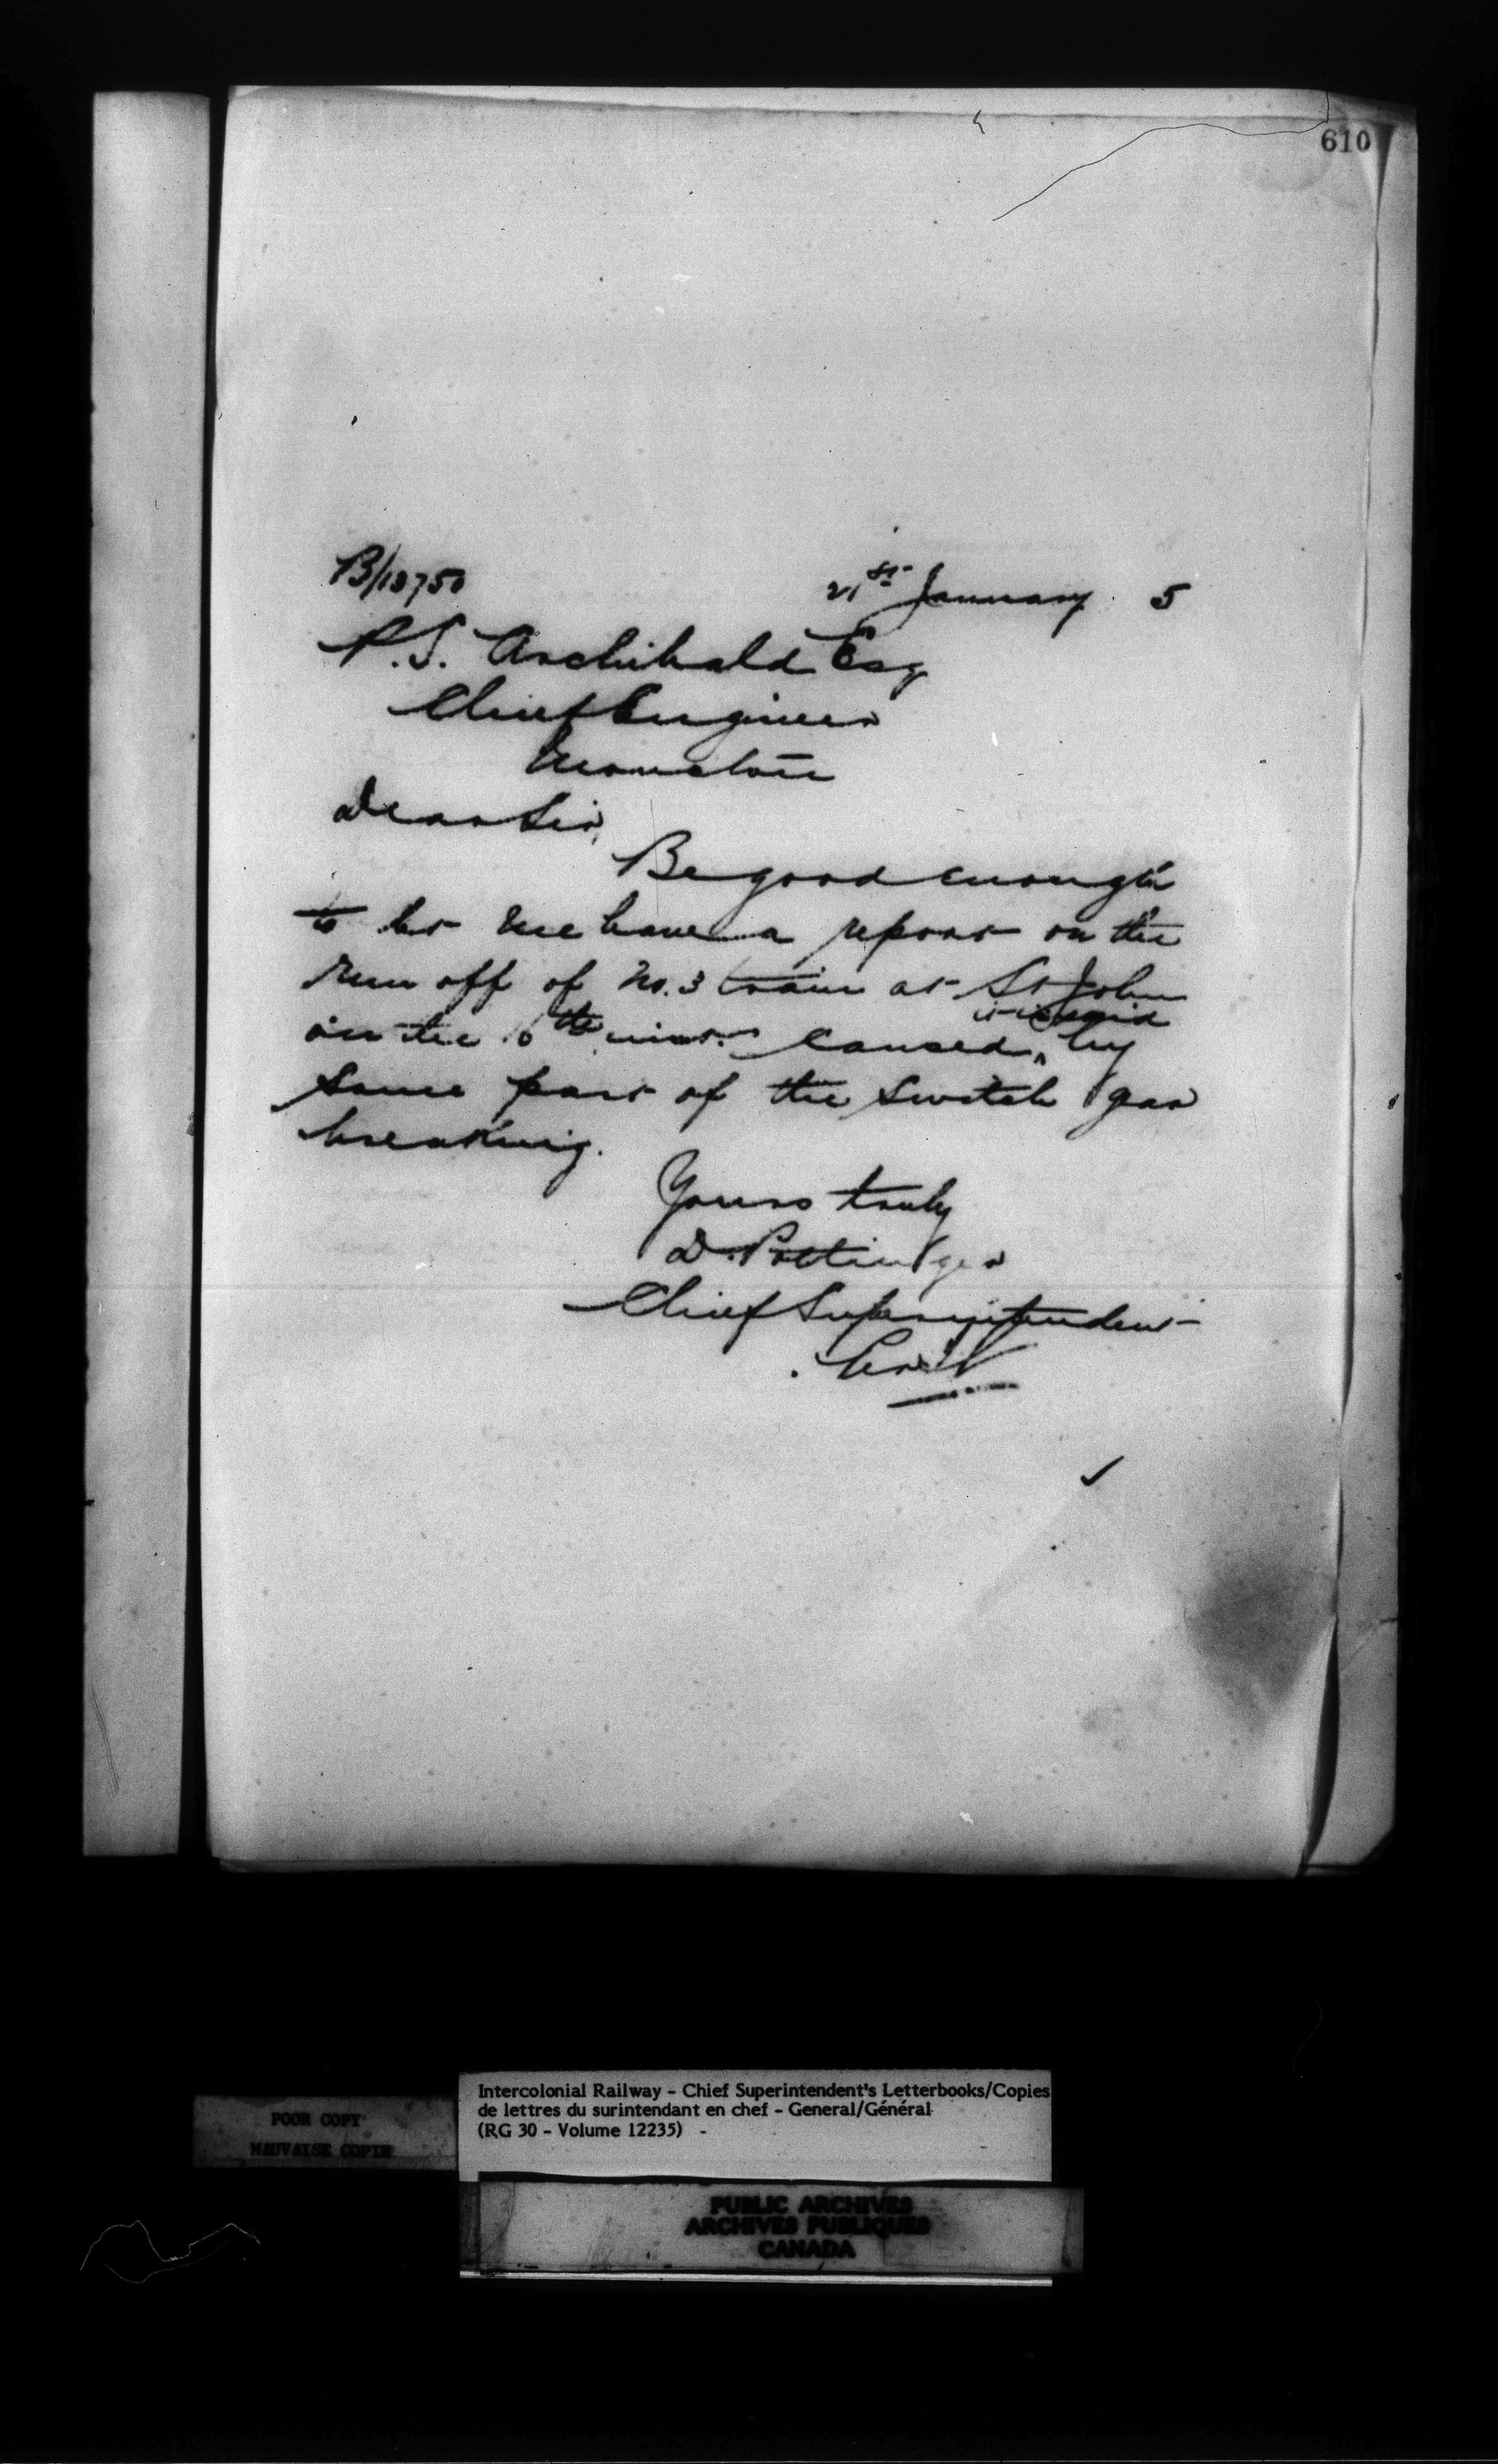 610
B/13750
21st January 5
P.S. Archibald Esq
Chief Engineer
Moncton
Dear Sir,
Be good enough
to let me have a report on the
run off of No. 3 train at St John
it is said
on the 6th inst. caused by
some part of the switch gear
breaking.
Yours truly
D. Pottinger
Chief Superintendent
Intercolonial Railway - Chief Superintendent's Letterbooks/Copies
de lettres du surintendant en chef - General/Général
(RG 30 - Volume 12235) -
POOR COPY
MAUVAISE COPIE
PUBLIC ARCHIVES
ARCHIVES PUBLIQUES
CANADA